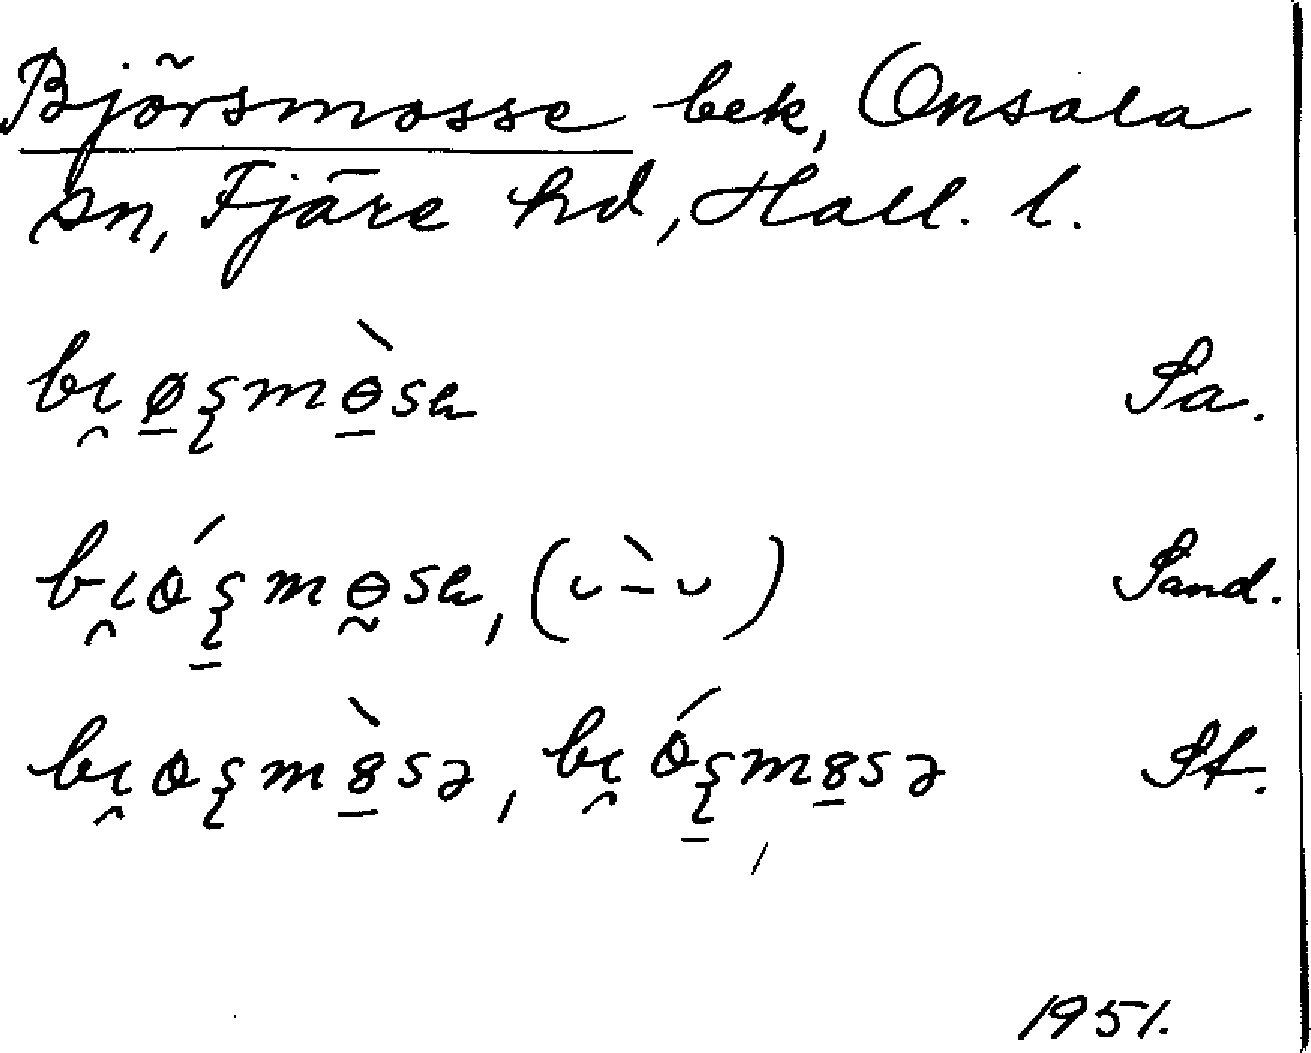 Björsmosse bek, Onsala
sn, Fjäre hd, Hall. l.
bı̯ø̠ʂmɵ̠̀sɐ Sa.
bı̯óʂ̠mɵ̰sɐ, (ᴗ -̀ ᴗ) Sand.
bı̯oʂm8̠̀sə, bı̯óʂ̠m8̠sə St.
1951.